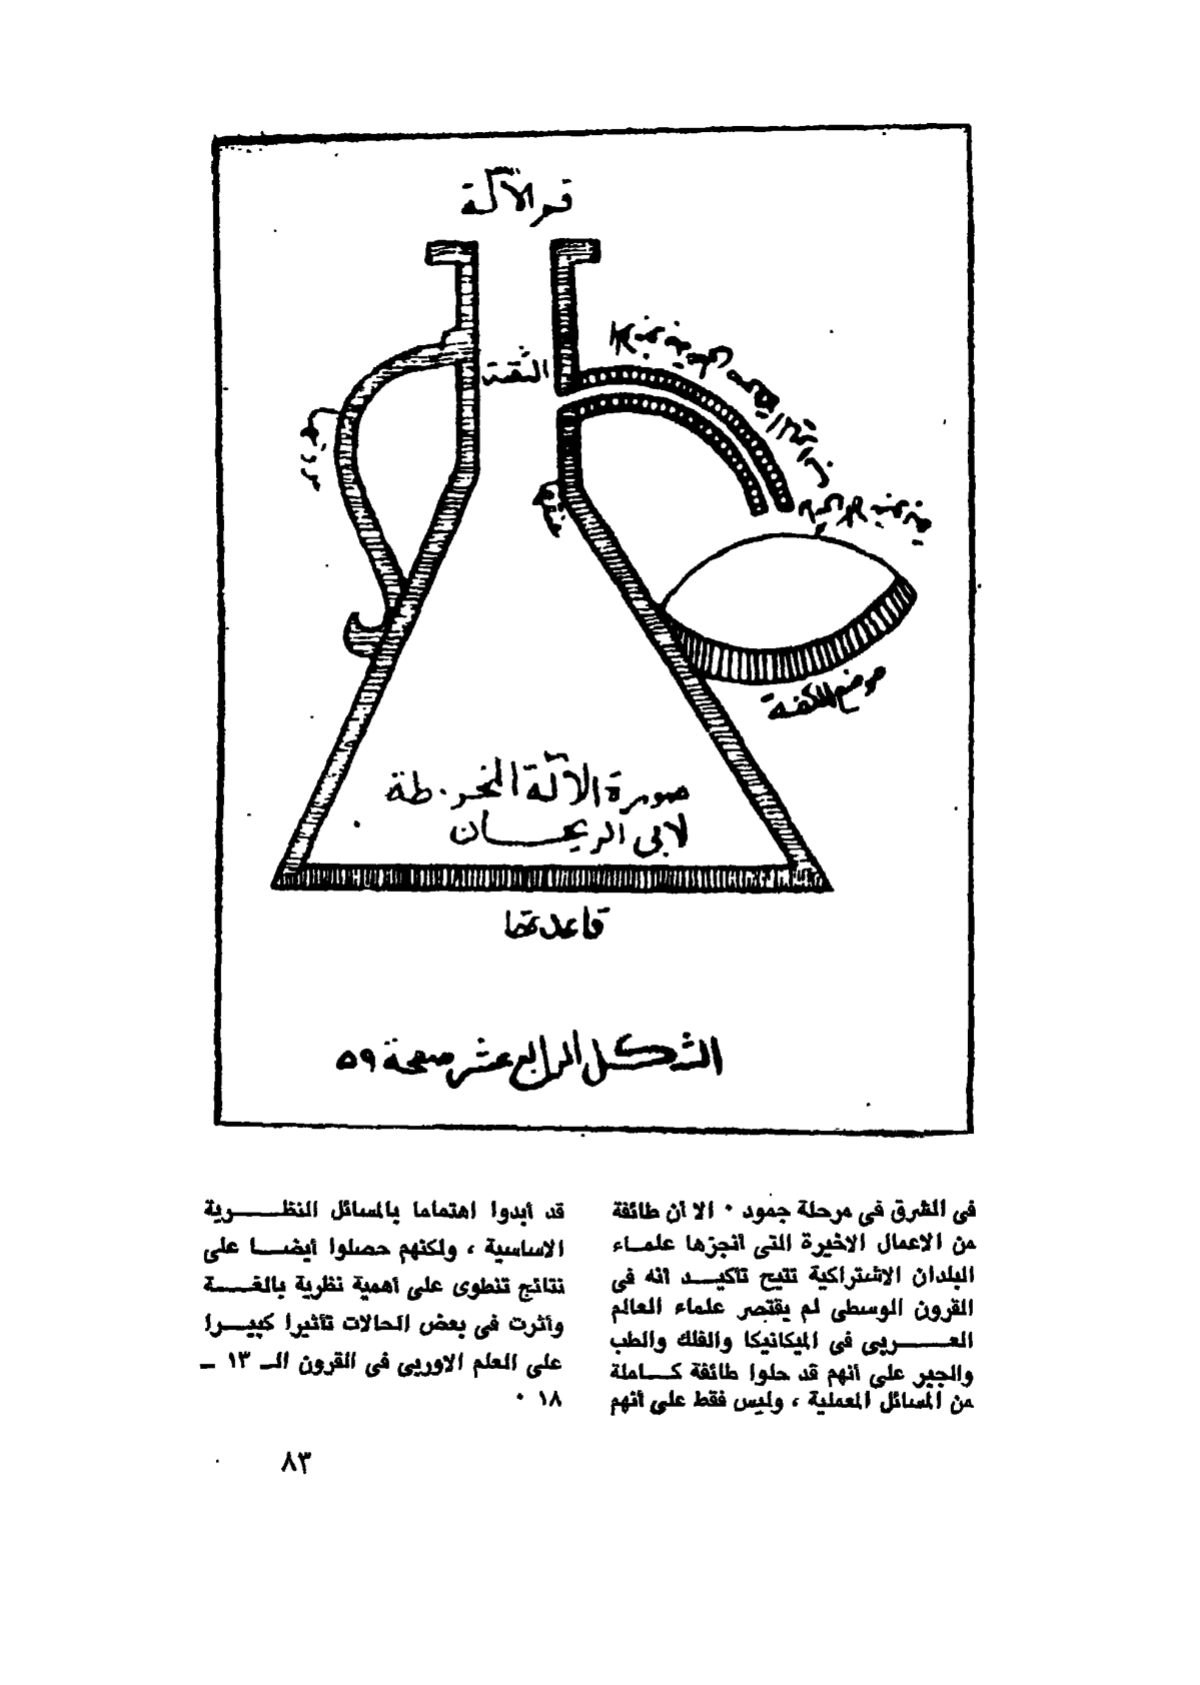 فم الآلة
الثقبة
عنقها
موضع الكفة
صورة الآلة المخروطة
لابي الريحان
قاعدتها
الشكل الرابع عشر صفحة ٥٩
فى الشرق فى مرحلة جمود ٠ الا أن طائفة
من الاعمال الاخيرة التى أنجزها علمــاء
البلدان الاشتراكية تتيح تأكيــد أنه فى
القرون الوسطى لم يقتصر علماء العالم
العــــربى فى الميكانيكا والفلك والطب
والجبر على أنهم قد حلوا طائفة كــاملة
من المسائل العملية ، وليس فقط على أنهم
قد أبدوا اهتماما بالمسائل النظــــرية
الاساسية ، ولكنهم حصلوا أيضــا على
نتائج تنطوى على أهمية نظرية بالغــة
وأثرت فى بعض الحالات تأثيرا كبيــرا
على العلم الاوربى فى القرون الـ ١٣ ـ
١٨ ٠
٨٣